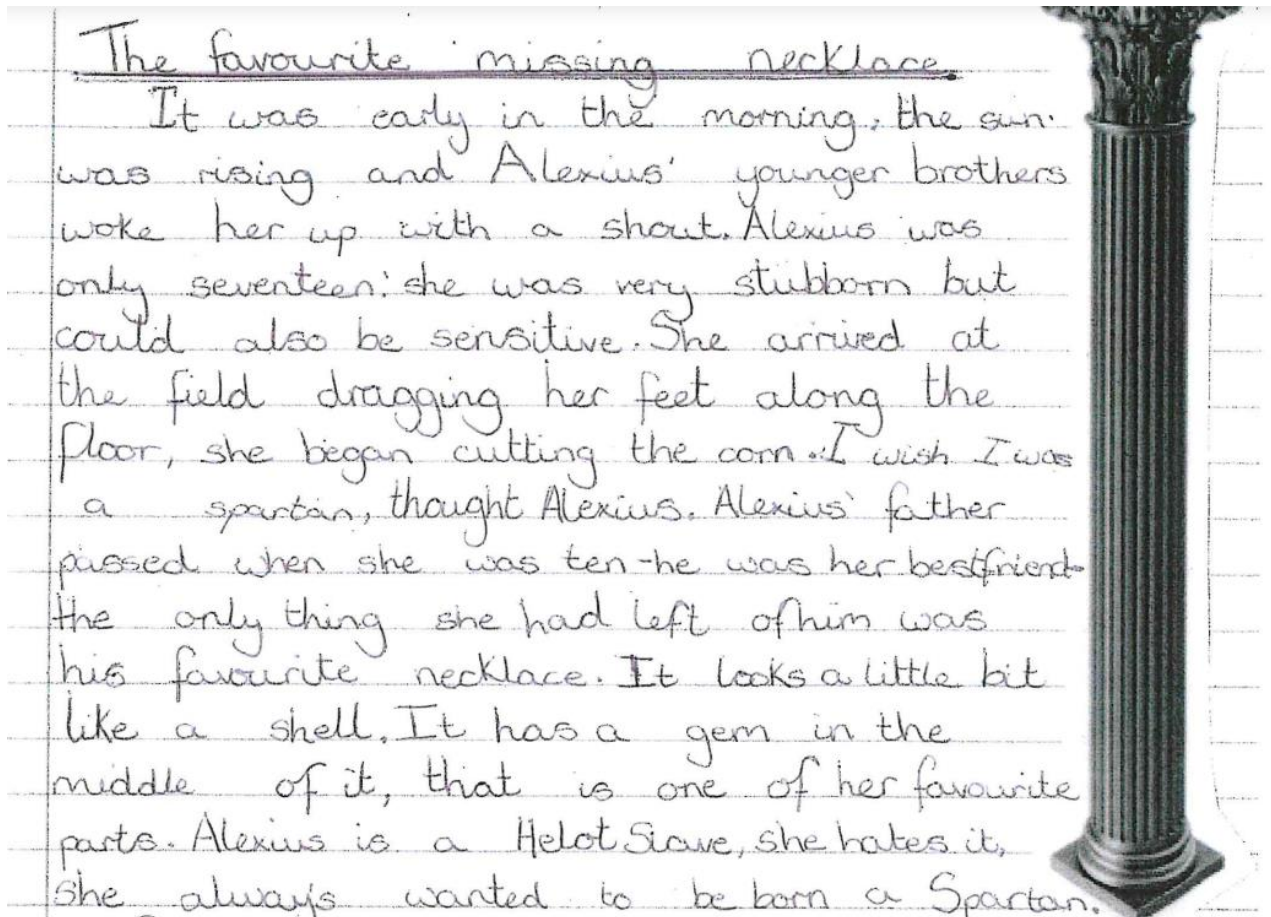 The favourite missing necklace.
It was early in the morning, the sun
was rising and Alexius' younger brothers
woke her up with a shout. Alexius was
only seventeen: she was very stubborn but
could also be sensitive. She arrived at
the field dragging her feet along the
floor, she began cutting the corn. I wish I was
a spartan, thought Alexius. Alexius' father
passed when she was ten-he was her bestfriend-
the only thing she had left of him was
his favourite necklace. It looks a little bit
like a shell. It has a gem in the
middle of it, that is one of her favourite
parts. Alexius is a Helot Slave, she hates it,
she always wanted to be born a Spartan.